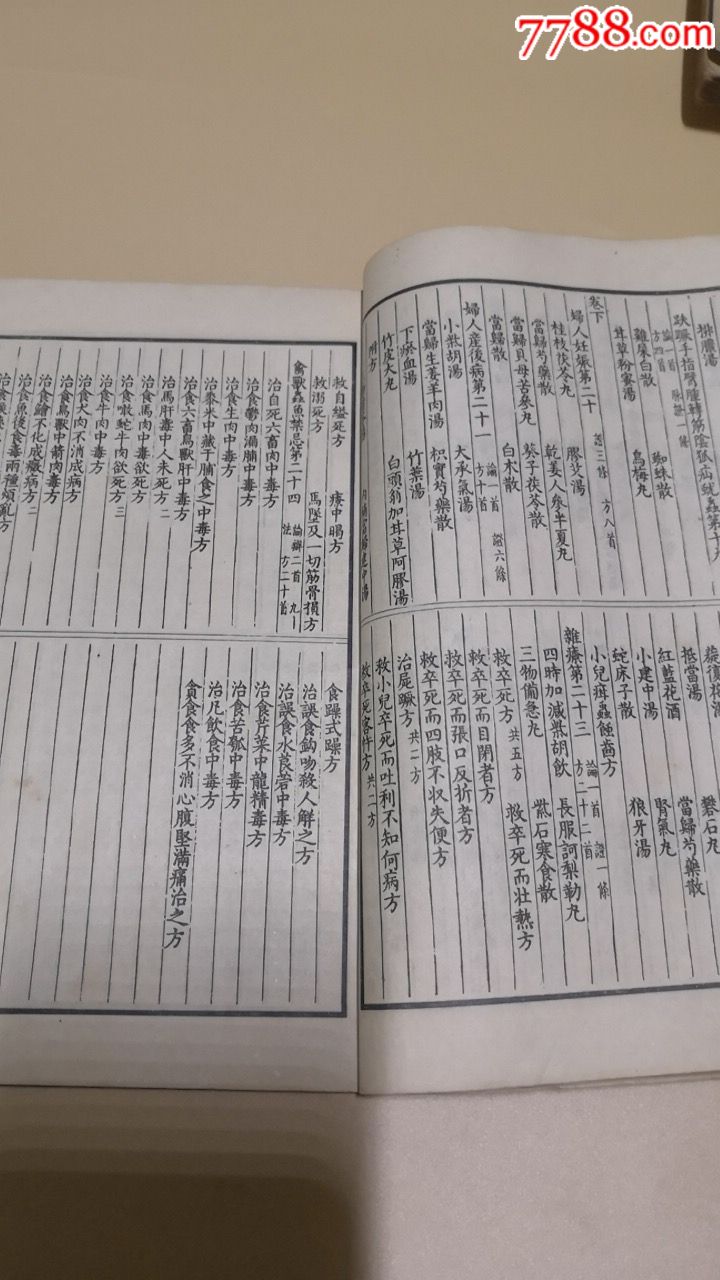 7788.com
排膿湯
趺蹶手指臂腫轉筋陰狐疝蚘蟲第十九
論一首 脉證一條
方四首
雞屎白散 蜘蛛散
甘草粉蜜湯 烏梅丸
卷下
婦人妊娠第二十 證三條 方八首
桂枝茯苓丸 膠艾湯
當歸芍藥散 乾姜人參半夏丸
當歸貝母苦參丸 葵子茯苓散
當歸散 白木散
婦人産後病第二十一 論一首 證六條 方十首
小柴胡湯 大承氣湯
當歸生姜羊肉湯 枳實芍藥散
下瘀血湯 竹葉湯
竹皮大丸 白頭翁加甘草阿膠湯
旋復花湯 礬石丸
抵當湯 當歸芍藥散
紅藍花酒 腎氣丸
小建中湯 狼牙湯
蛇床子散
小兒疳蟲蝕齒方
雜療第二十三 論一首 證一條 方二十二首
四時加減柴胡飲 長服訶梨勒丸
三物備急丸 紫石寒食散
救卒死方 共五方 救卒死而壯熱方
救卒死而目閉者方
救卒死而張口反折者方
救卒死而四肢不収失便方
治屍蹶方 共二方
救小兒卒死而吐利不知何病方
救卒死客忤方 共二方
救自縊死方 療中暍方
救溺死方 馬墜及一切筋骨損方
禽獸蟲魚禁忌第二十四 論辯二首
治自死六畜肉中毒方
治食鬱肉漏脯中毒方
治食生肉中毒方
治黍米中藏干脯食之中毒方
治食六畜鳥獸肝中毒方
治馬肝毒中人未死方 二
治食馬肉中毒欲死方
治噉蛇牛肉欲死方 三
治食牛肉中毒方
治食犬肉不消成病方
治食鳥獸中箭肉毒方
治食鱠不化成癥病方 二
治食魚後食毒兩種煩亂方
食躁式躁方
治誤食鈎吻殺人解之方
治誤食水莨菪中毒方
治食芹菜中龍精毒方
治食苦瓠中毒方
治凡飲食中毒方
貪食食多不消心腹堅滿痛治之方